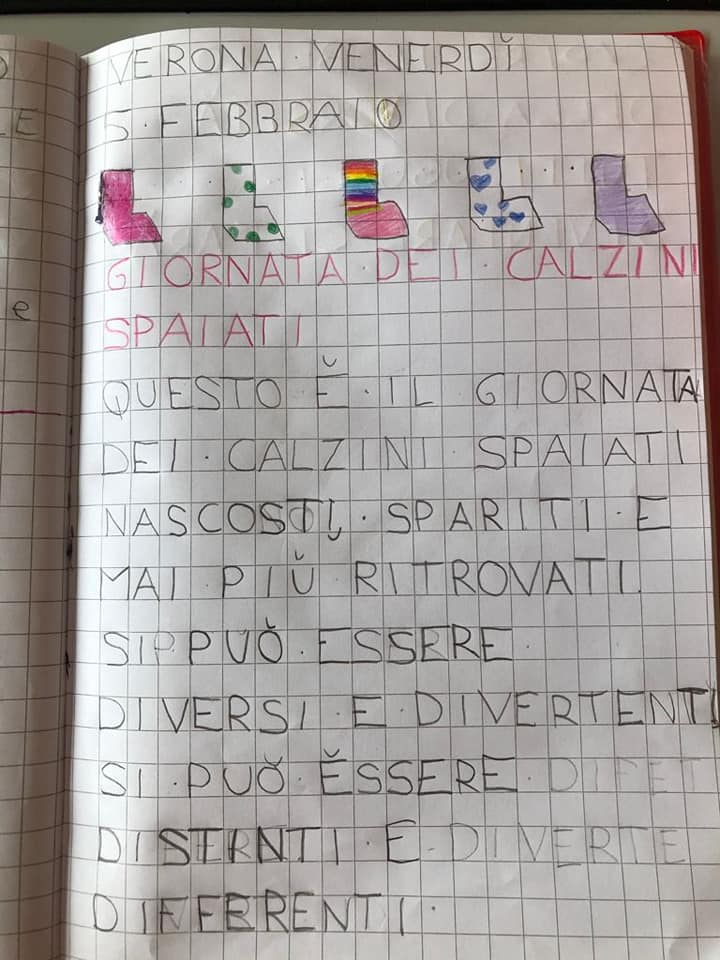 VERONA · VENERDÌ
5 · FEBBRAIO
GIORNATA · DEI · CALZINI
SPAIATI
QUESTO · È · IL GIORNATA
DEI · CALZINI SPAIATI
NASCOSTI · SPARITI · E
MAI · PIÙ RITROVATI.
SI PUÒ · ESSERE ·
DIVERSI · E · DIVERTENTI
SI · PUÒ · ESSERE ·
DISTINTI · E · DIVERTE
DIFFERENTI ·
e